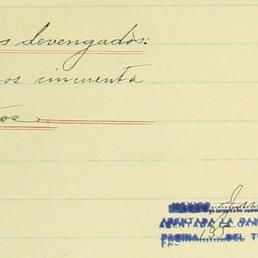 s devengados:
os cincuenta
tos.
MEXICO
ASENTADA LA PAR
PAGINA 135 DEL T